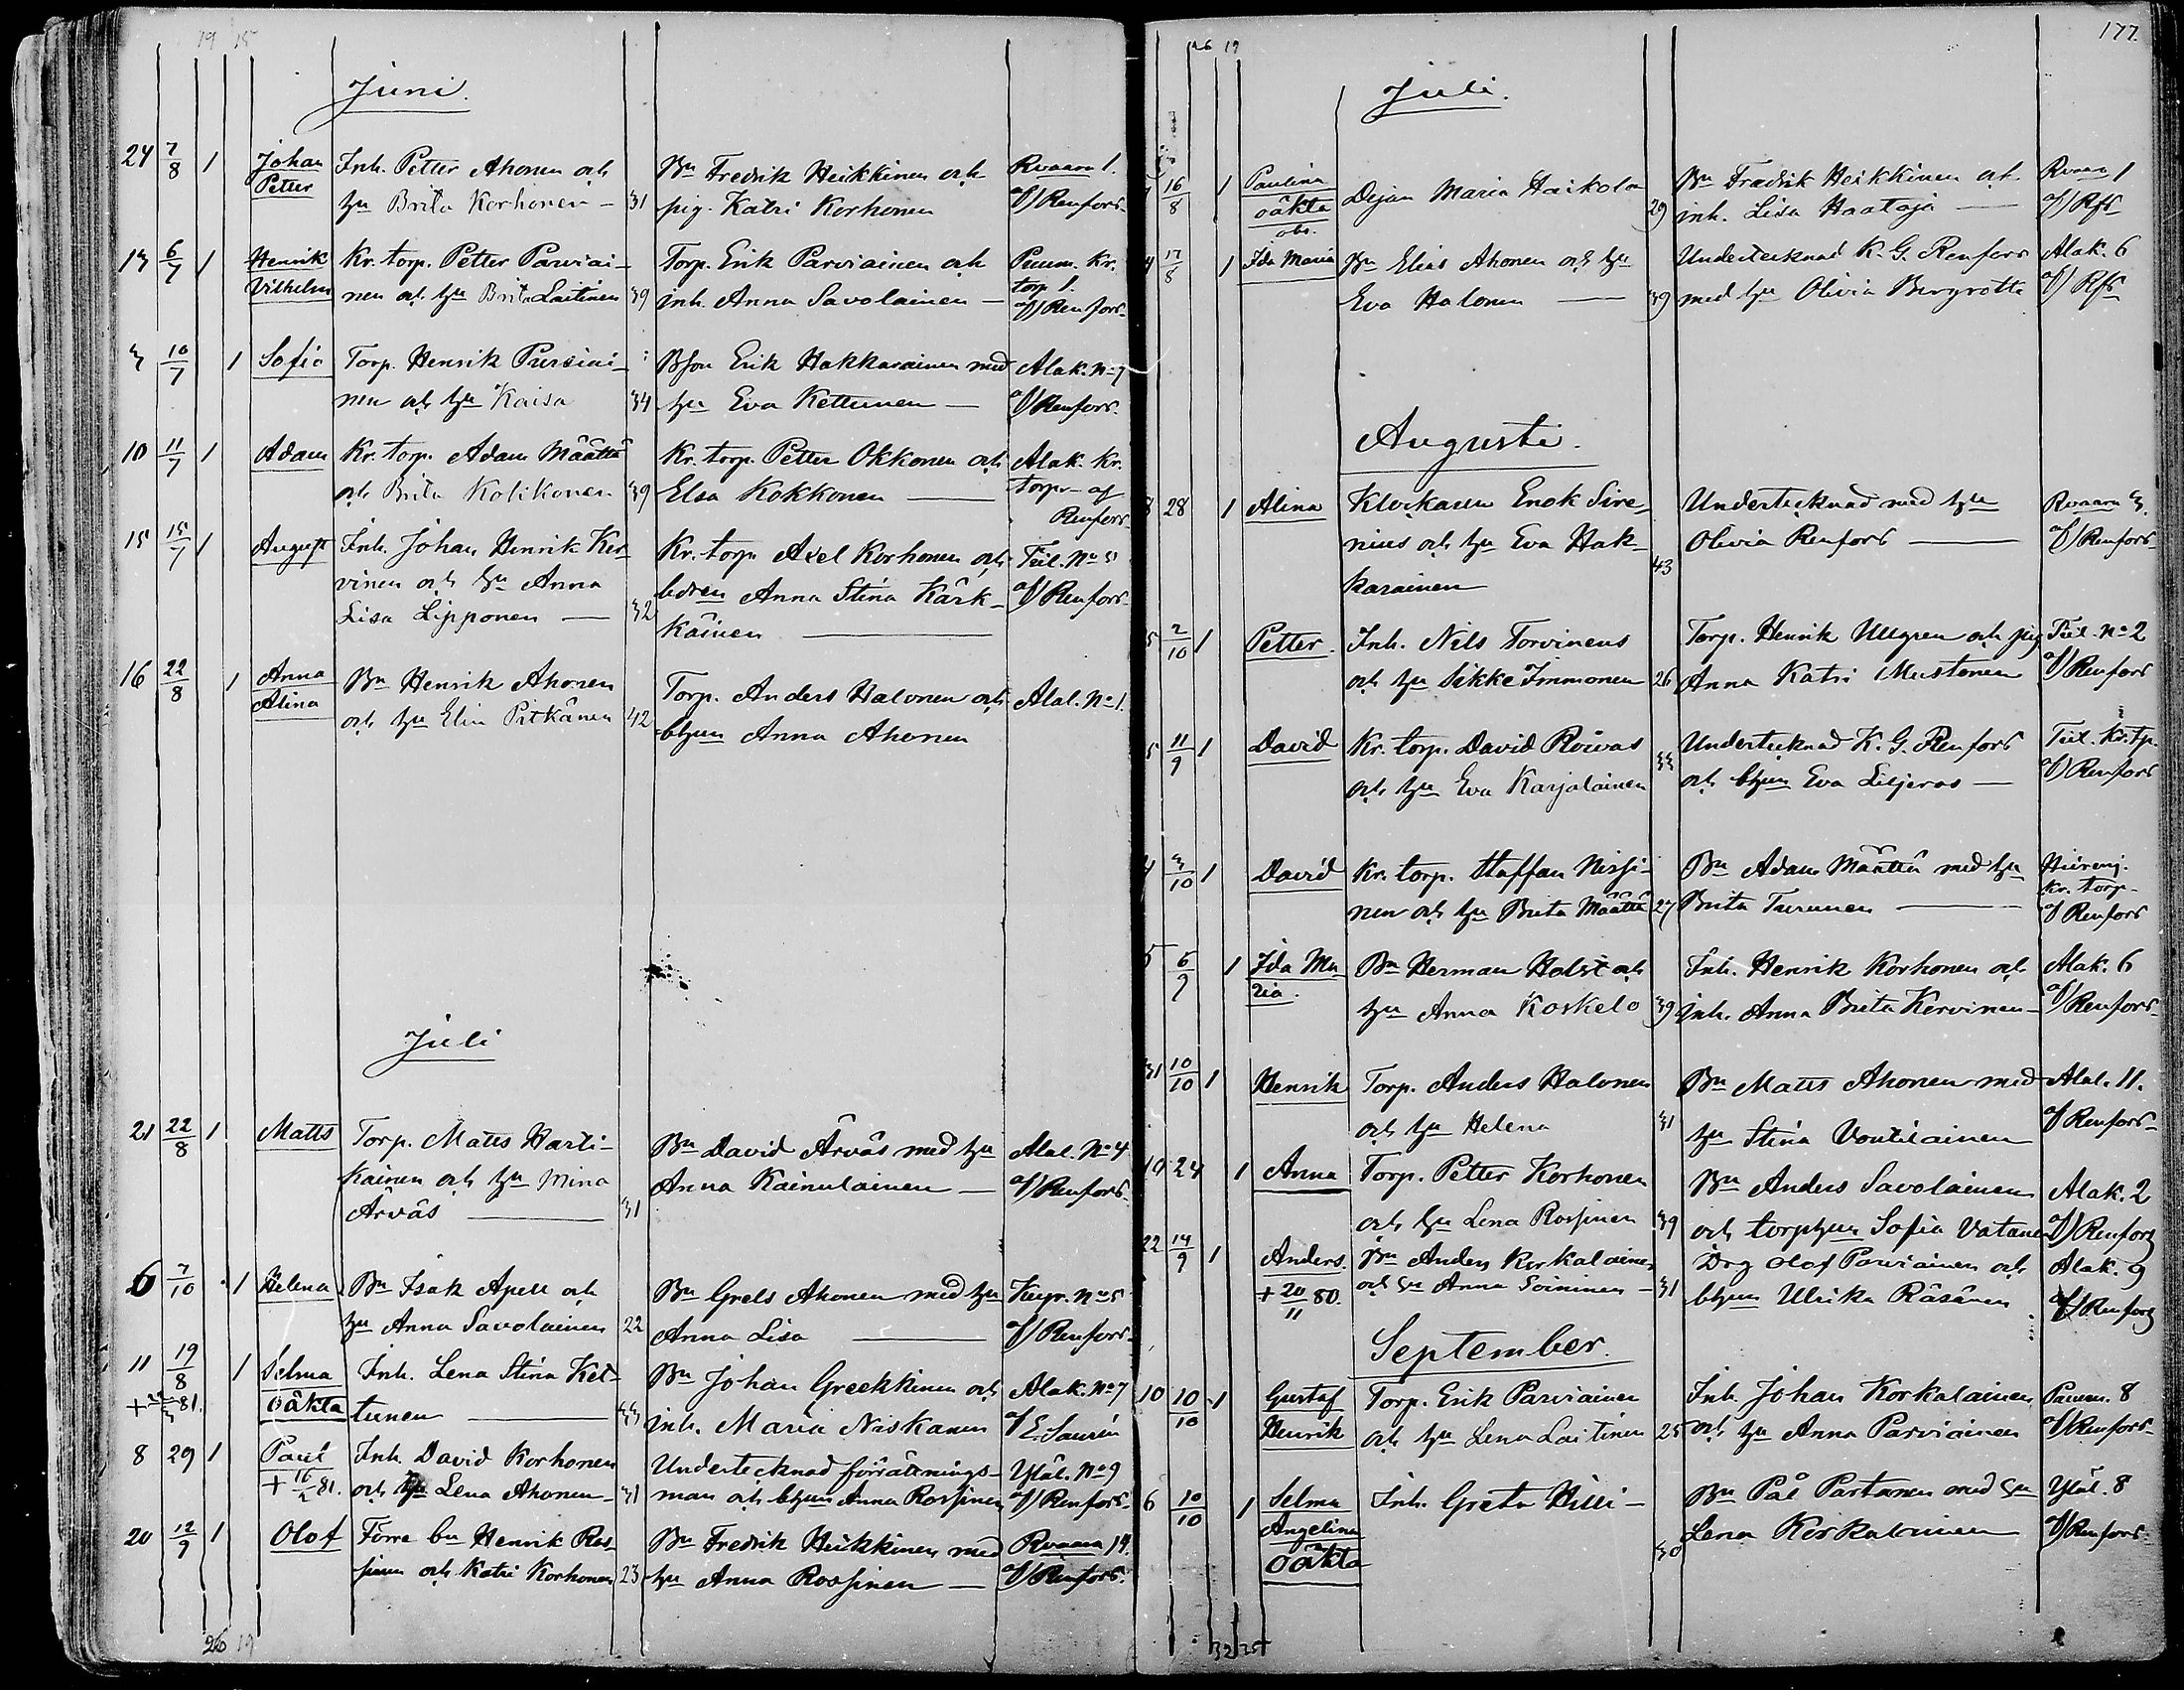 19 15
Juni.
24 7/8 1 Johan Inh. Petter Ahonen och Bn Fredrik Heikkinen och Rvaara 1.
Petter hu Brita Korhonen — 31 pig. Katri Korhonen af Renfors
13 6/7 1 Henrik Kr. torp. Petter Parviai- Torp. Erik Parviainen och Puum. Kr.
Vilhelm nen och hu Brita Laitinen 39 inh. Anna Savolainen — torp 1.
af Renfors
3 10/7 1 Sofia Torp. Henrik Pursiai- Bson Erik Hakkarainen med Alak. No 7
nen och hu Kaisa 34 hu Eva Kettunen — af Renfors.
10 11/7 1 Adam Kr. torp. Adam Määttä Kr. torp. Petter Okkonen och Alak. Kr.
och Brita Kolikonen 39 Elsa Kokkonen — torp- af
Renfors
15 15/7 1 August Inh. Johan Henrik Ker- Kr. torp. Axel Korhonen och Tiil. No 5
vinen och hu Anna bdren Anna Stina Kärk- af Renfors
Lisa Lipponen — 32 käinen —
16 22/8 1 Anna Bn Henrik Ahonen Torp. Anders Halonen och Alal. No 1.
Alina och hu Elin Pitkänen 42 bhun Anna Ahonen
Juli
21 22/8 1 Matts Torp. Matts Harti- Bn David Ärväs med hu Alal. No 4
kainen och hu Mina Anna Kainulainen — af Renfors.
Ärväs — 31
6 7/10 1 Helena Bn Isak Apell och Bn Grels Ahonen med hu No 5
hu Anna Savolainen 22 Anna Lisa — af Renfors
11 19/8 1 Selma Inh. Lena Stina Ket- Bn Johan Greekkinen och Alak. No 7
81. oäkta tunen — 33 inh. Maria Niskanen af E. Saurén
8 29 1 Paul Inh. David Korhonen Undertecknad förrättnings- Yläl. No 9
+ 16/2 81. och hu Lena Ahonen — 31 man och bhun Anna Rossinen af Renfors
20 12/9 1 Olof Förre bn Henrik Ros- Bn Fredrik Heikkinen med Rvaara 14.
sinen och Katri Korhonen 23 hu Anna Rossinen — af Renfors.
26 19
26 19
177.
Juli.
7 16/8 1 Paulina Dejan Maria Haikola Bn Fredrik Heikkinen och Rvaara 1
oäkta 29 inh. Lisa Haataja — af Rfs
obs.
4 17/8 1 Ida Maria Bn Elias Ahonen och hu Undertecknad K. G. Renfors Alak. 6
Eva Halonen — 39 med hu Olivia Bergroth af Rfs
Augusti.
8 28 1 Alina Klockaren Enok Sire- Undertecknad med hu Rvaara 3.
nius och hu Eva Hak- Olivia Renfors — af Renfors
karainen 43
5 2/10 1 Petter. Inh. Nils Torvinens Torp. Henrik Ullgren och pig Tiil. No 2
och hu Sikke Immonen 26 Anna Katri Mustonen af Renfors
5 11/9 1 David Kr. torp. David Roivas Undertecknad K. G. Renfors Tiil. Kr. tp.
och hu Eva Karjalainen 33 och bhun Eva Liljeros — af Renfors
4 3/10 1 David Kr. torp. Staffan Nissi- Bn Adam Määttä med hu Hiirenj.
nen och hu Brita Määttä 27 Brita Turunen — Kr. torp-
af Renfors
5 5/9 1 Ida Ma- Bn Herman Holst och Inh. Henrik Korhonen och Alak. 6
ria. hu Anna Koskelo 39 inh. Anna Brita Kervinen — af Renfors
31 10/10 1 Henrik Torp. Anders Halonen Bn Matts Ahonen med Alal. 11.
och hu Helena 31 hu Stina Voutilainen af Renfors
19 24 1 Anna Torp. Petter Korhonen Bn Anders Savolainen Alak. 2
och hu Lena Rossinen 39 och torphun Sofia Vatanen af Renfors
22 14/9 1 Anders. Bn Anders Korkalainen Drg Olof Parviainen och Alak. 9
+ 20/11 80. och hu Anna Soininen — 31 bhun Ulrika Räsänen af Renfors
September.
10 10/10 1 Gustaf Torp. Erik Parviainen Inh. Johan Korkalainen Puum. 8
Henrik och hu Lena Laitinen 25 och hu Anna Parviainen af Renfors
6 10/10 1 Selma Inh. Greta Hilli- Bn Pål Partanen med hu Yläl. 8
Angelina 30 Lena Korkalainen af Renfors
oäkta
32 25